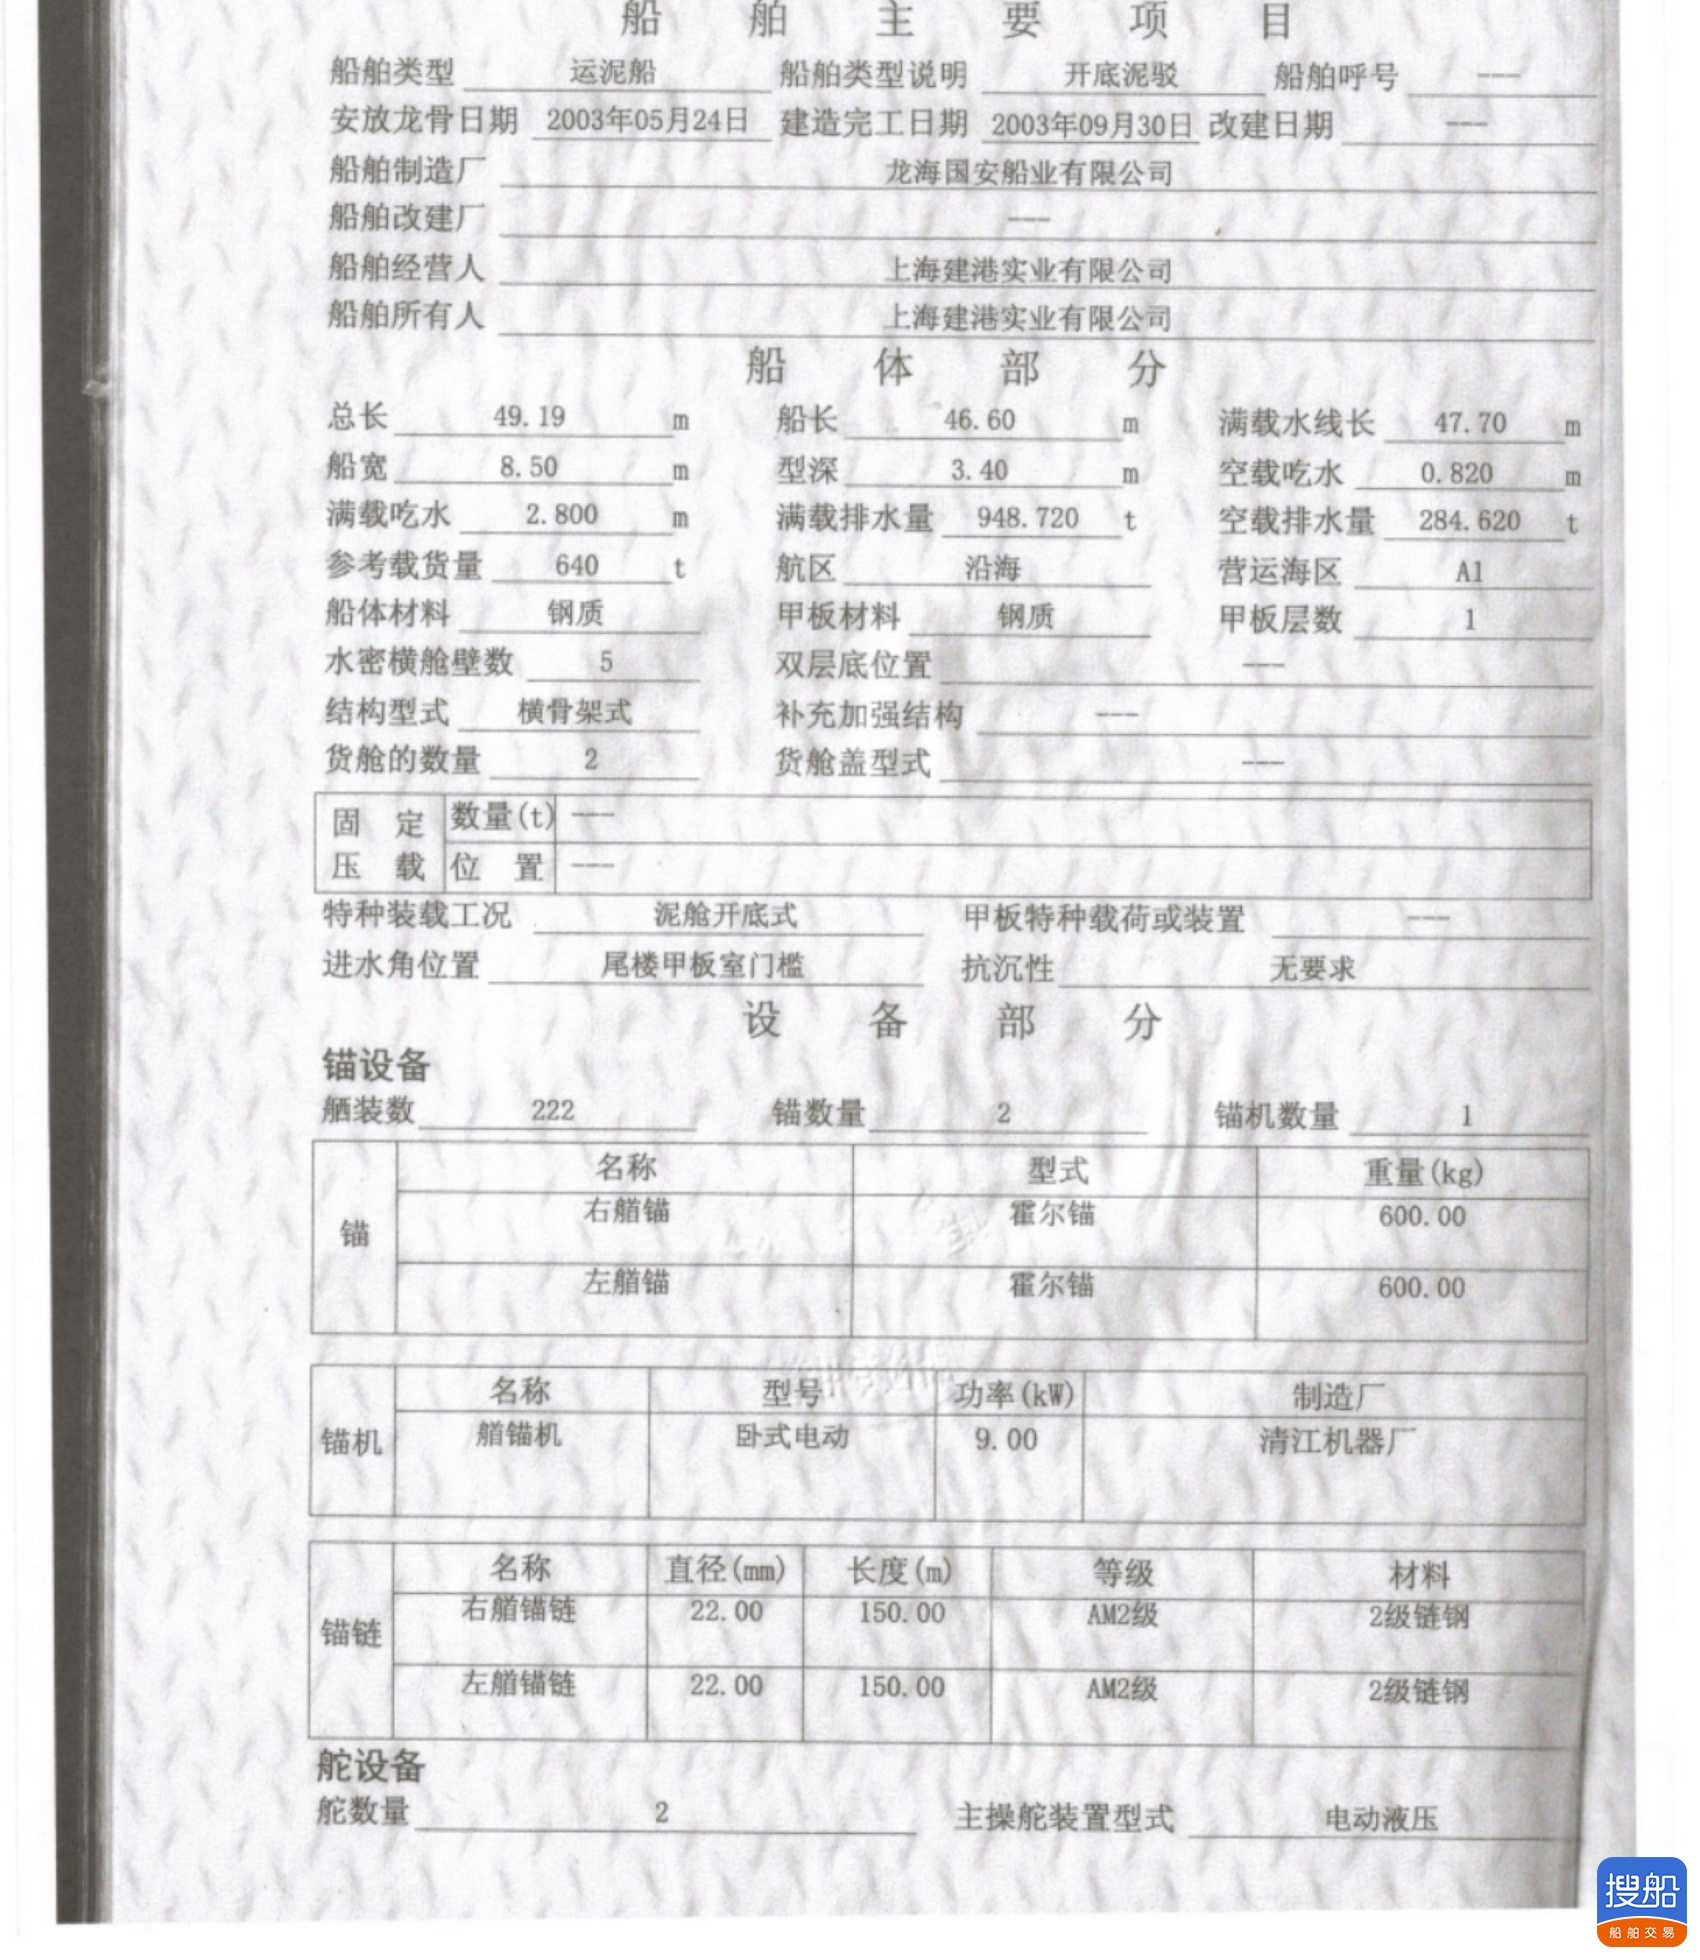 船舶主要项目
船舶类型 运泥船 船舶类型说明 开底泥驳 船舶呼号 ---
安放龙骨日期 2003年05月24日 建造完工日期 2003年09月30日 改建日期 ---
船舶制造厂 龙海国安船业有限公司
船舶改建厂 ---
船舶经营人 上海建港实业有限公司
船舶所有人 上海建港实业有限公司
船体部分
总长 49.19 m 船长 46.60 m 满载水线长 47.70 m
船宽 8.50 m 型深 3.40 m 空载吃水 0.820 m
满载吃水 2.800 m 满载排水量 948.720 t 空载排水量 284.620 t
参考载货量 640 t 航区 沿海 营运海区 A1
船体材料 钢质 甲板材料 钢质 甲板层数 1
水密横舱壁数 5 双层底位置 ---
结构型式 横骨架式 补充加强结构 ---
货舱的数量 2 货舱盖型式 ---
固定 数量(t) ---
压载 位置 ---
特种装载工况 泥舱开底式 甲板特种载荷或装置 ---
进水角位置 尾楼甲板室门槛 抗沉性 无要求
设备部分
锚设备
舾装数 222 锚数量 2 锚机数量 1
名称 型式 重量(kg)
右艏锚 霍尔锚 600.00
锚
左艏锚 霍尔锚 600.00
名称 型号 功率(kW) 制造厂
锚机 艏锚机 卧式电动 9.00 清江机器厂
名称 直径(mm) 长度(m) 等级 材料
右艏锚链 22.00 150.00 AM2级 2级链钢
锚链
左艏锚链 22.00 150.00 AM2级 2级链钢
舵设备
舵数量 2 主操舵装置型式 电动液压
搜船
船舶交易